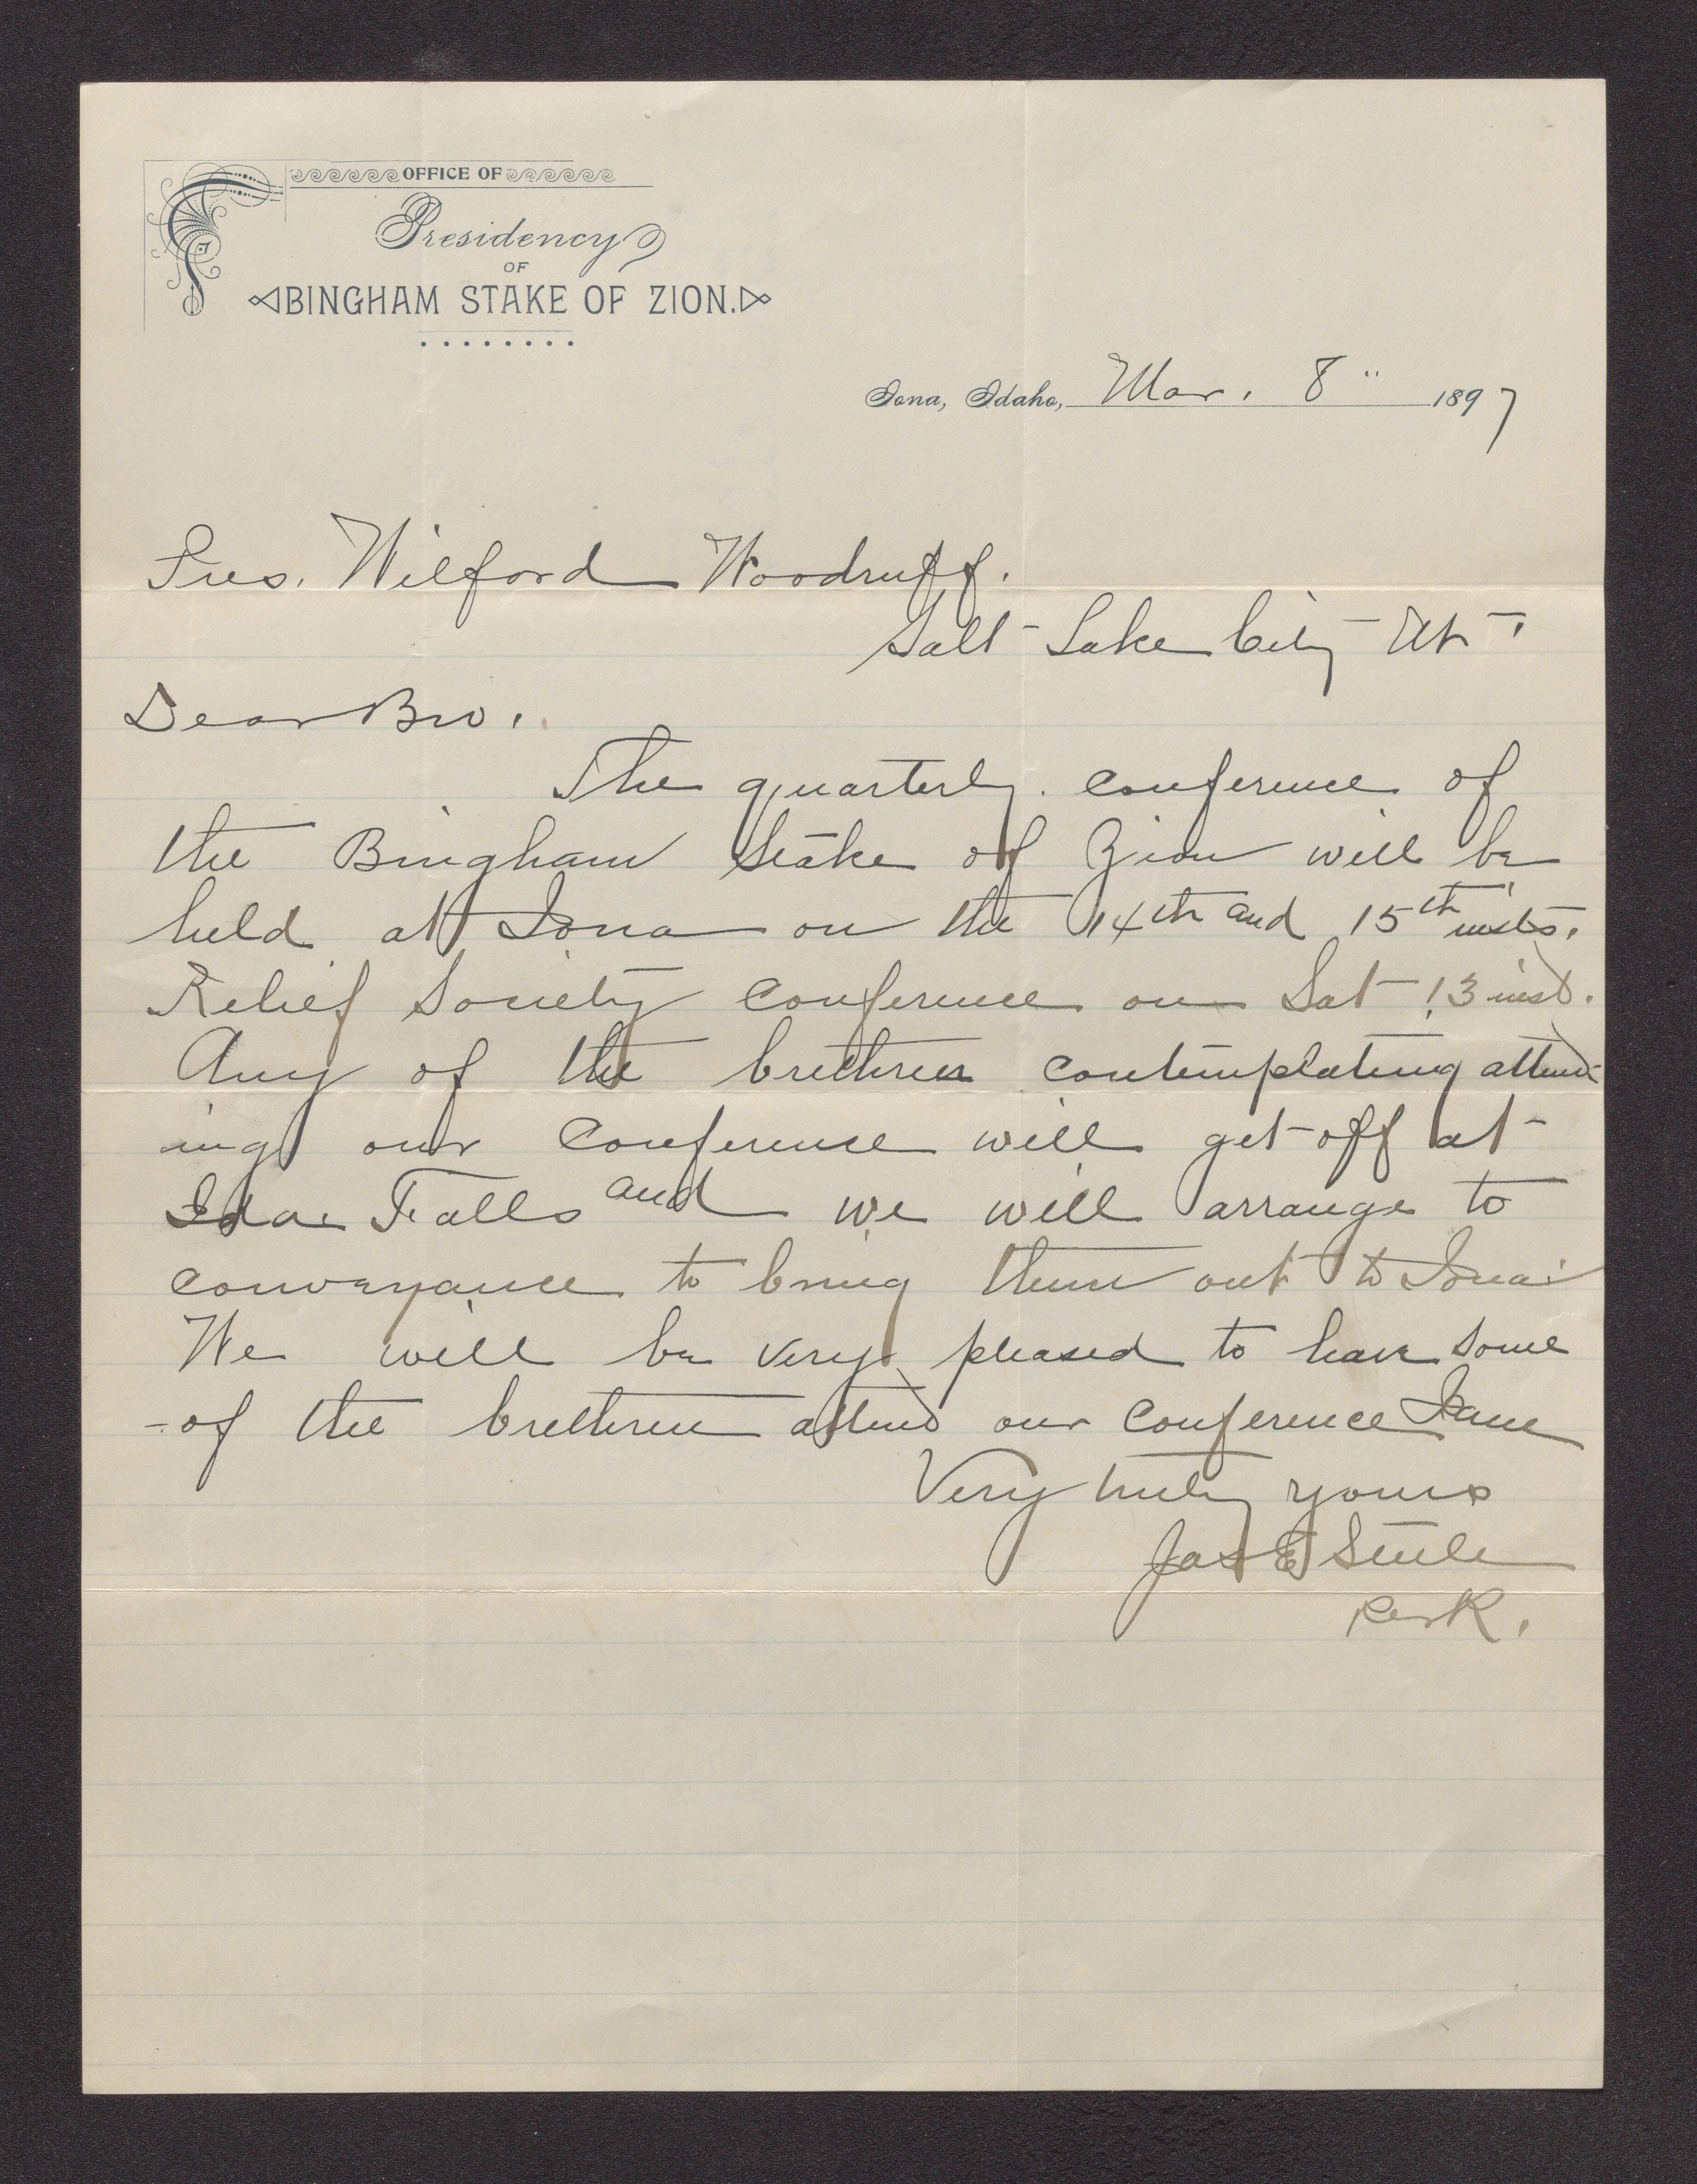 OFFICE OF
Presidency
OF
BINGHAM STAKE OF ZION.
Iona, Idaho, Mar. 8" 1897
Pres. Wilford Woodruff.
Salt Lake City Ut.
Dear Bro.
The quarterly conference of
the Bingham Stake of Zion will be
held at Iona on the 14th and 15th insts.
Relief Society conference on Sat 13 inst.
Any of the brethren contemplating attend-
ing our conference will get off at
Idaho Falls and we will arrange to
conveyance to bring them out to Iona
We will be very pleased to have some
of the brethren attend our conference I am
Very truly yours
Jas E Steele